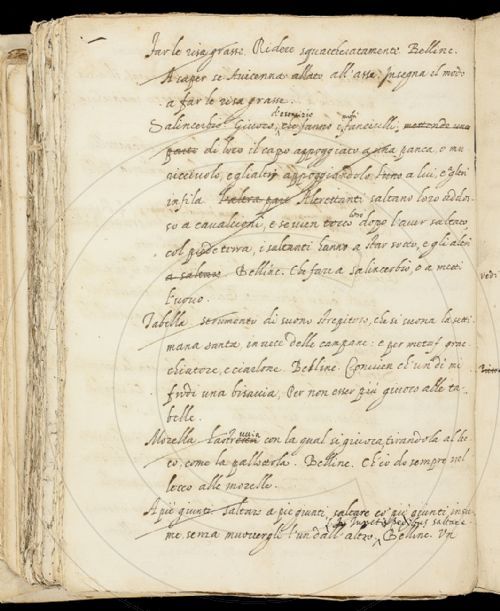 Far le risa grasse. Ridere squacheratamente. Belline.
A saper se Auicenna allato all'asse Insegna el modo
a far le risa grasse.
d'esercizio
Salincerbio. Giuoco, che fanno i fanciulli, mettendo uno
di loro il capo appoggiato a una panca, o mu
ricciuolo, e gli altri appoggiandolo a lui, e gli
infila. Altrettanti saltano loro addos-
so a cavalcioni, e se niun tocco loro dopo l'aver saltato
col piede terra, i saltanti hanno a star sotto, e gli altri
a saltare Belline. Che fare a Salincerbio, o a metti
l'uovo.
Tabella strumento di suono strepitoso, che si suona la setti
mana santa, in vece delle campane: e per metaf. grac
chiatore, e ciarlone. Belline. Convien ch'un dì mi
frodi una bisaccia, Per non esser più giuoco alle ta-
belle.
Morella con la qual si giuoca, tirandola al lec
co, come la pallottola. Belline. Ch'io do sempre nel
lecco alle morelle.
A piè giunti. Saltare a piè giunti, saltare co' piè giunti insie
me, senza muovergli l'un dall'altro. Belline. Un